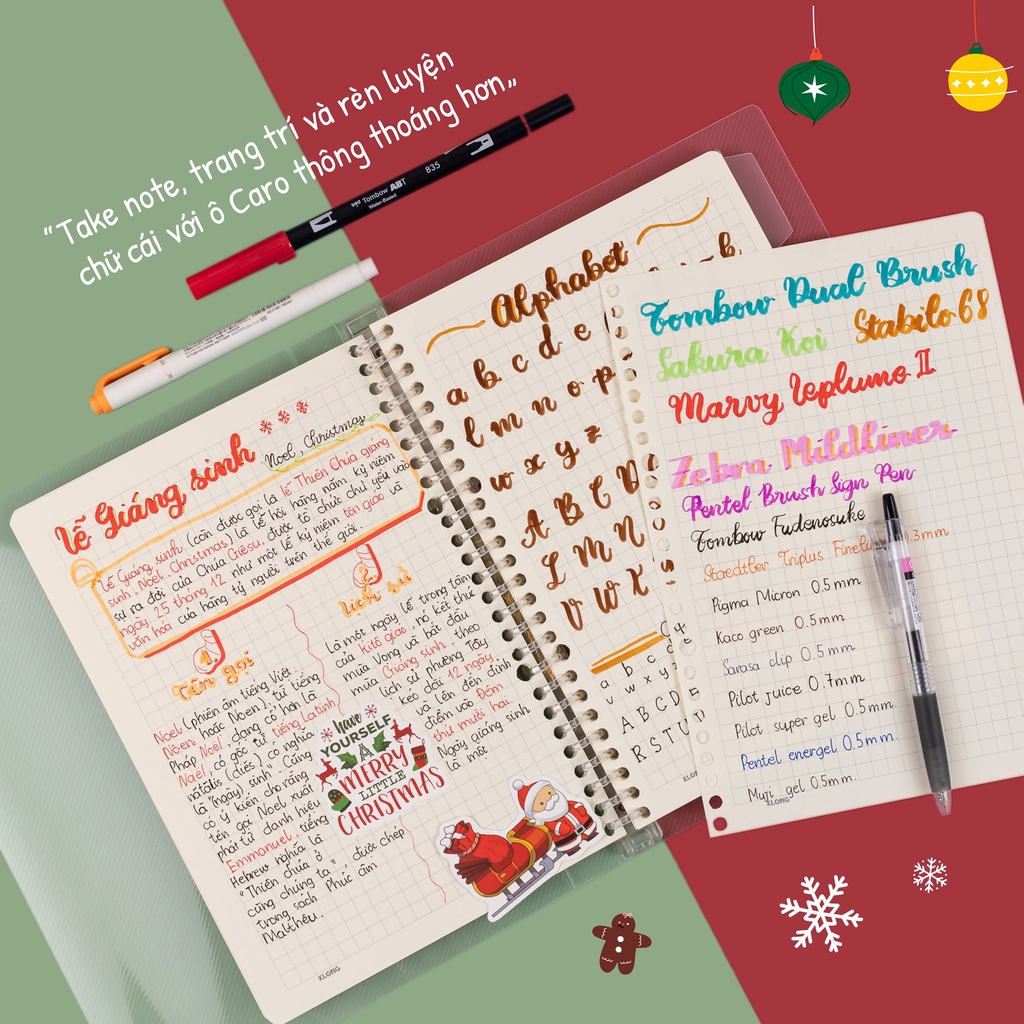 “Take note, trang trí và rèn luyện
chữ cái với ô Caro thông thoáng hơn„
Tombow ABT
835
Water-Based
Lễ Giáng sinh
Noel, Christmas
Lễ Giáng sinh (còn được gọi là lễ Thiên Chúa giáng
sinh, Noel, Christmas) là lễ hội hàng năm kỷ niệm
sự ra đời của Chúa Giêsu, được tổ chức chủ yếu vào
ngày 25 tháng 12 như một lễ kỷ niệm tôn giáo và
văn hoá của hàng tỷ người trên thế giới.
1.
Tên gọi
Noel (phiên âm tiếng Việt:
Nôen hoặc Noen), từ tiếng
Pháp Noël, dạng cổ hơn là
Naël, có gốc từ tiếng latinh
natālis (diēs) có nghĩa
là "(ngày) sinh". Cũng
có ý kiến cho rằng
tên gọi Noel xuất
phát từ danh hiệu
Emmanuel, tiếng
Hebrew nghĩa là
"Thiên chúa ở
cùng chúng ta" được chép
trong sách Phúc âm
Matthêu.
lịch sử
Là một ngày lễ trọng tâm
của Kitô giáo, nó kết thúc
mùa Vọng và bắt đầu
mùa Giáng sinh theo
lịch sử phương Tây
kéo dài 12 ngày
và lên đến đỉnh
điểm vào Đêm
thứ mười hai.
Ngày giáng sinh
là một
have
YOURSELF
A
MERRY
LITTLE
CHRISTMAS
KLONG
Alphabet
a b c d e
l m n o p
w x y z
A B C D
L M N
V W X
a b c d
w x y z
A B C D E
R S T U
KLONG
Tombow Dual Brush
Sakura Koi Stabilo 68
Marvy Leplume II
Zebra Mildliner
Pentel Brush Sign Pen
Tombow Fudenosuke
Staedtler Triplus 0.3mm
Pigma Micron 0.5mm
Kaco green 0.5mm
Sarasa clip 0.5mm
Pilot juice 0.7mm
Pilot super gel 0.5mm.
Pentel energel 0.5mm.
Muji gel 0.5mm.
KLONG